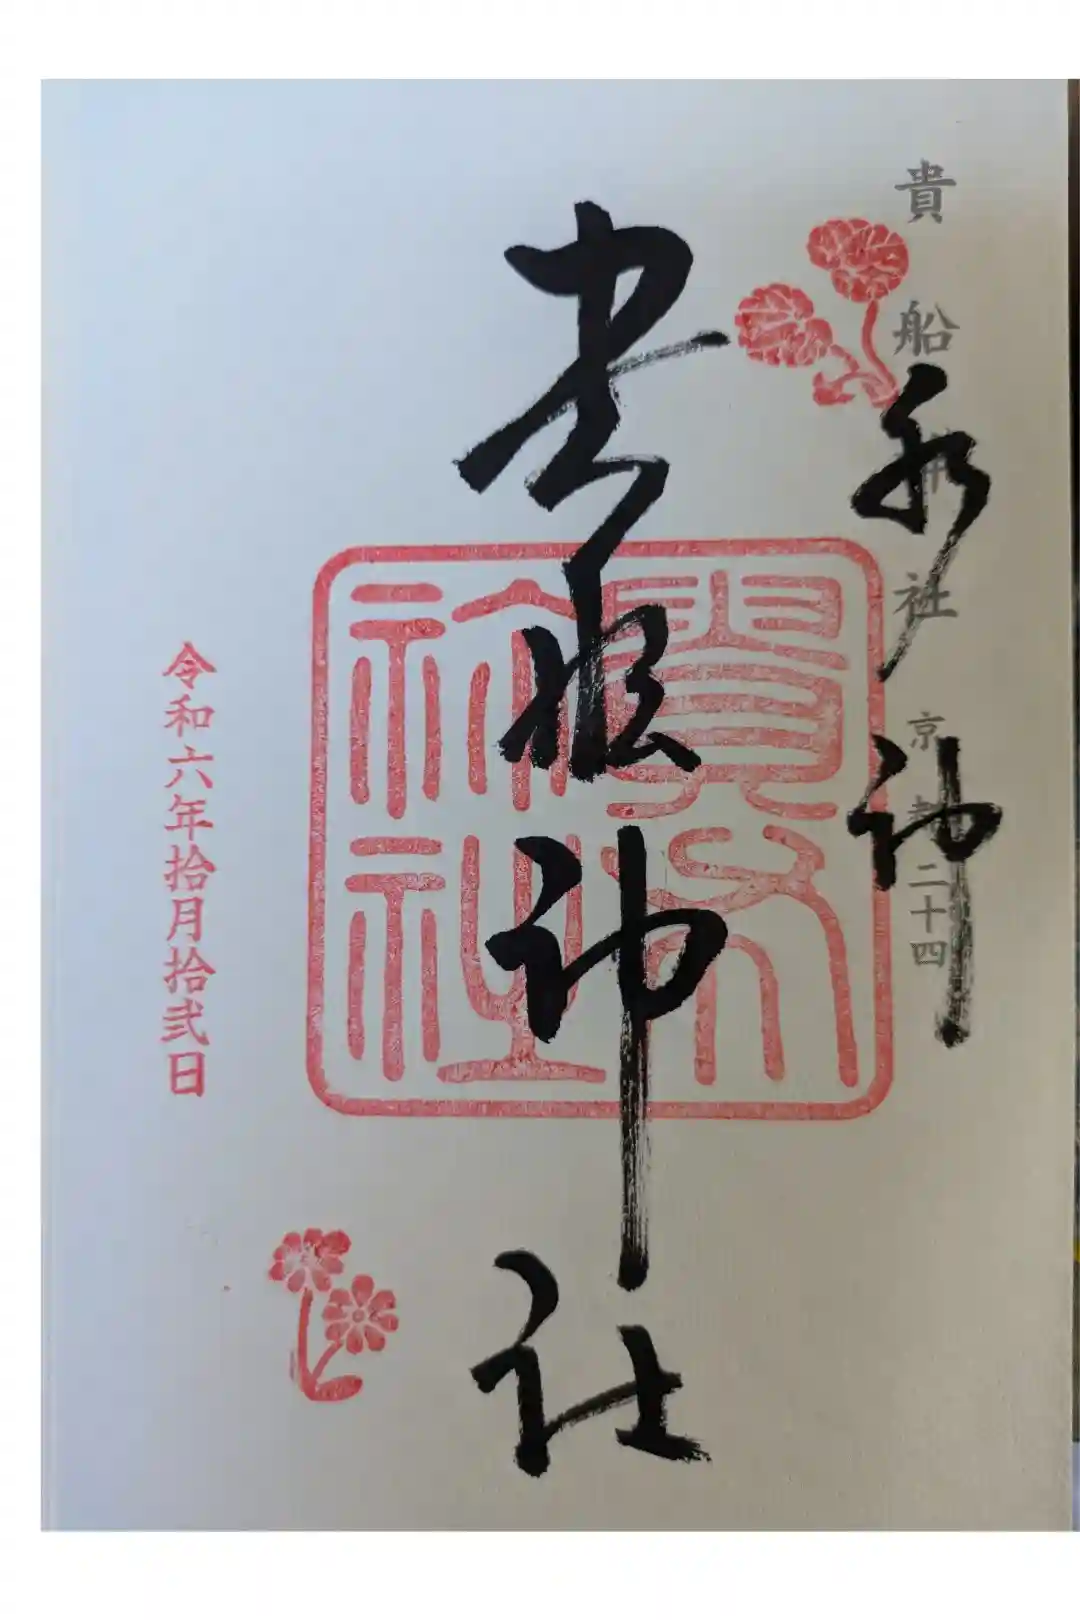 貴船神社 京都二十四
水神
貴船神社
貴船神社
令和六年拾月拾弐日